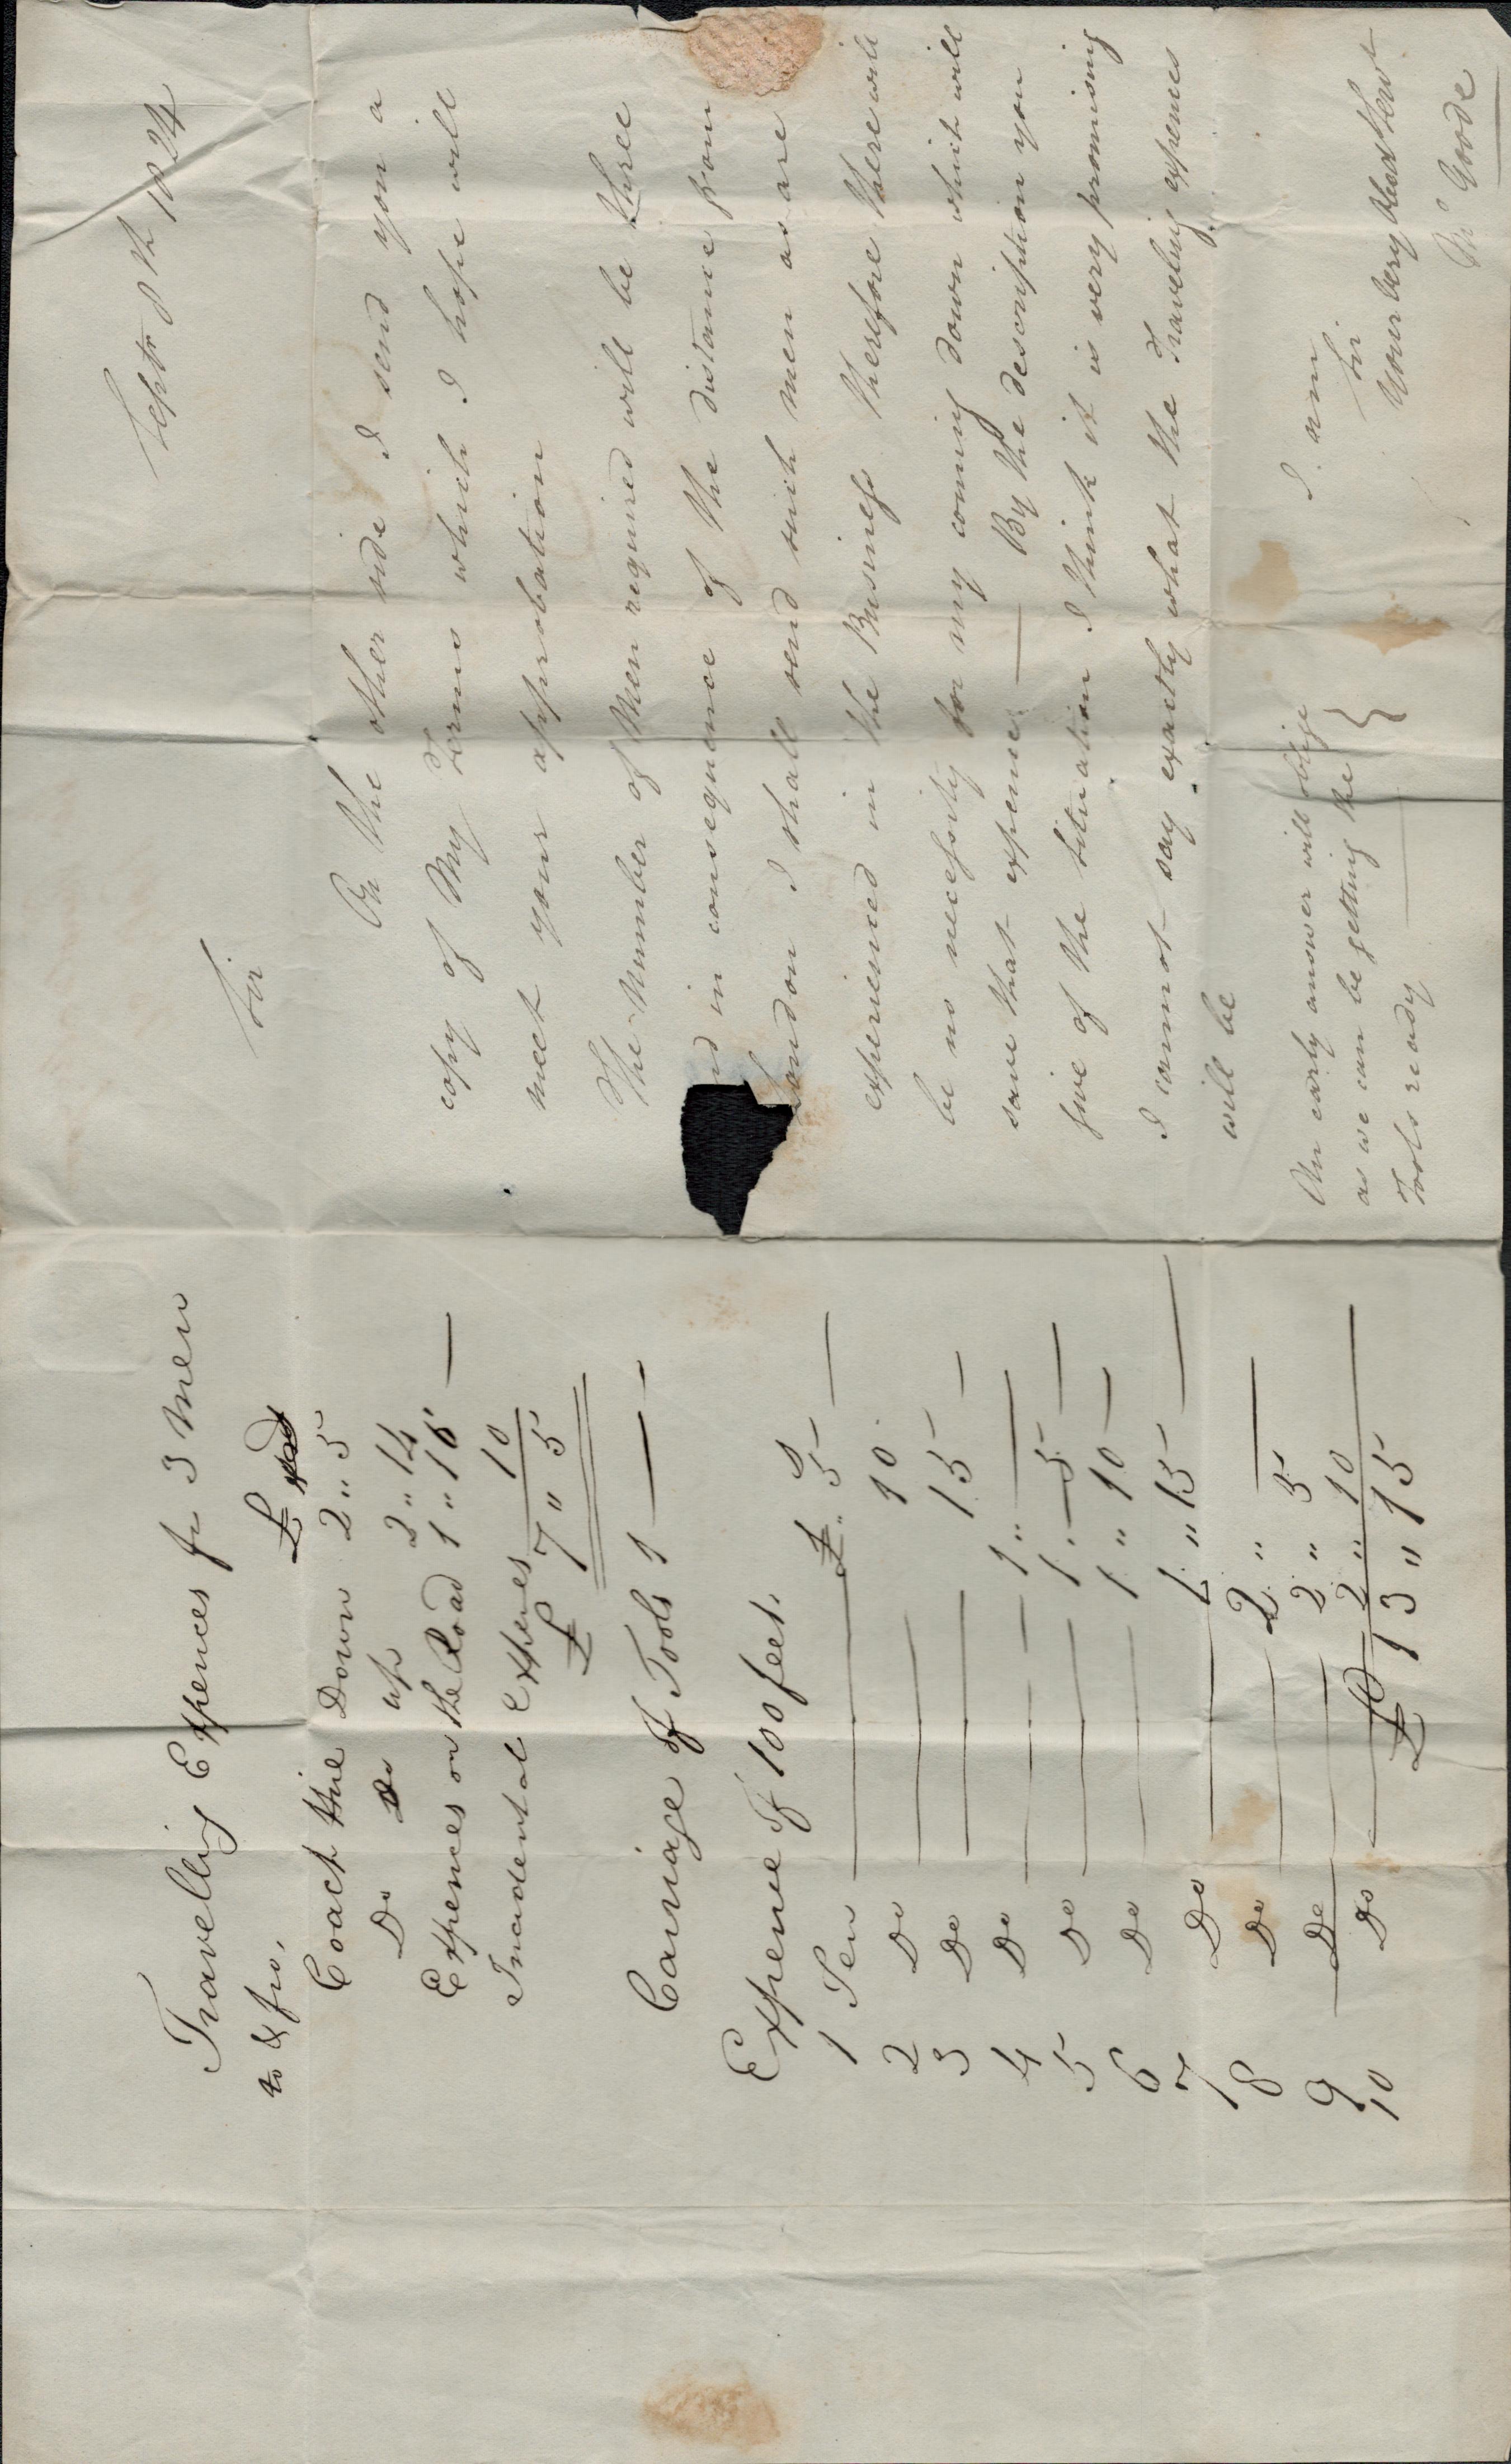 Septr 8th 1824
Sir
On the other side I send you a
copy of My Terms which I hope will
meet your approbation
The Number of Men required will be three
in consequence of the distance from
London I shall send such men as are
experienced in the Business therefore there will
be no necessity for my coming down which will
save that expence — By the description you
give of the situation I think it is very promising
I cannot say exactly what the Traveling expences
will be
I am
Sir
Your very
Goode
An early answer will oblige
as we can be getting the
Tools ready
Travelling Expences for 3 Men
to & fro,
£ s d
Coach Hire Down 2 " 5
Do Do up 2 " 14
Expences on the Road 1 " 16 —
Incidental Expences 10
£ 7 " 5
Carriage of Tools 1 — -
Expence of 100 feet.
1 Ten — £ " 5 —
2 Do — 10
3 Do — 15 —
4 Do — 1 " —
5 Do — 1 " 5 —
6 Do — 1 " 10 —
7 Do — 1 " 15 —
8 Do — 2 " —
9 Do — 2 " 5
10 Do — 2 " 10
£ 13 " 15